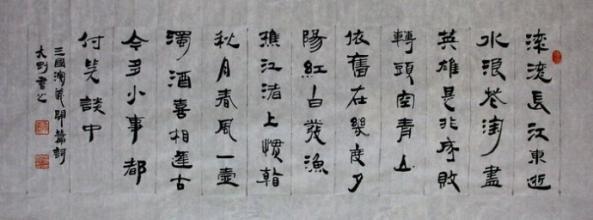 滚滚長江東逝
水浪花淘盡
英雄是非成敗
轉頭空青山
依舊在幾度夕
陽紅白髮漁
樵江渚上慣看
秋月春風一壺
濁酒喜相逢古
今多少事都
付笑談中
三國演義開篇詞